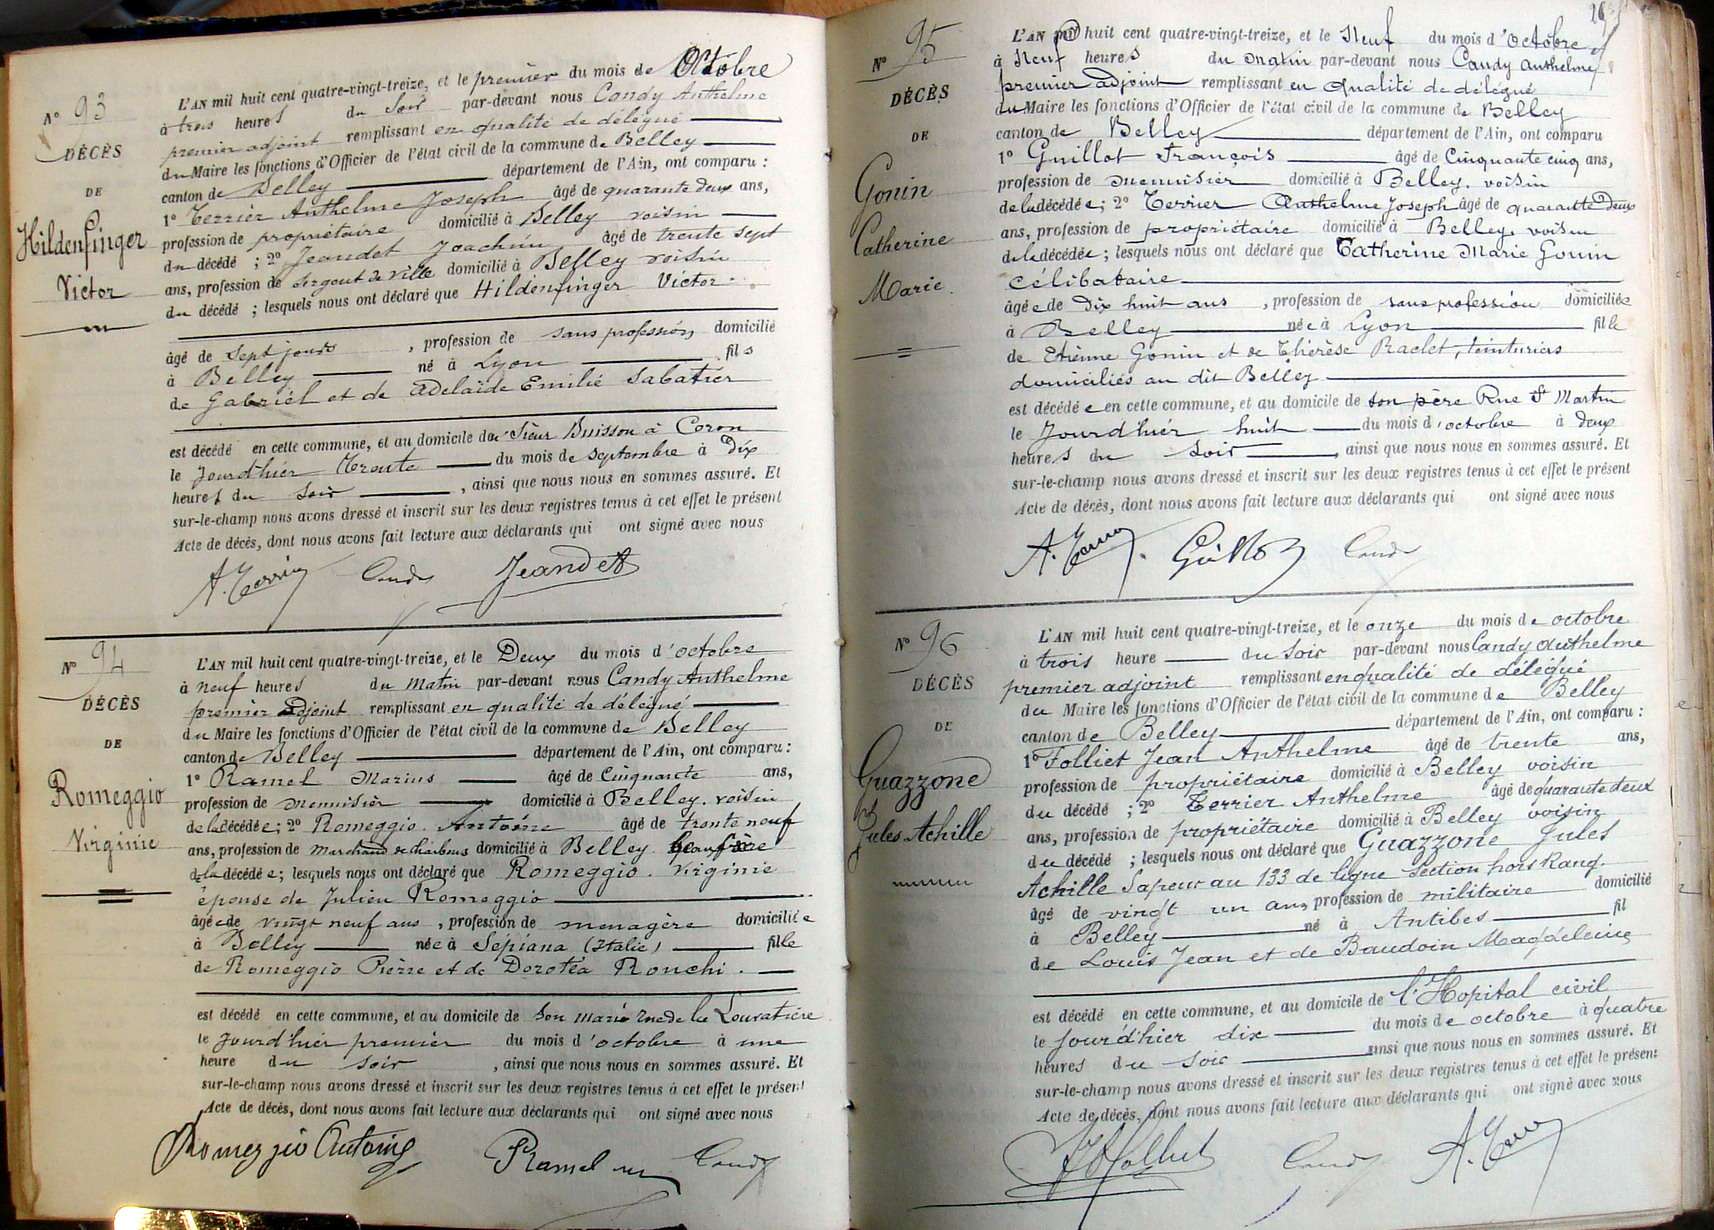 N° 93
DÉCÈS
DE
Hildenfinger
Victor
L'AN mil huit cent quatre-vingt-treize, et le premier du mois de Octobre
à trois heures du Soir par-devant nous Candy Anthelme
premier adjoint remplissant en qualité de délégué
du Maire les fonctions d'Officier de l'état civil de la commune de Belley
canton de Belley département de l'Ain, ont comparu :
1° Terrier Anthelme Joseph âgé de quarante deux ans,
profession de propriétaire domicilié à Belley voisin
du décédé ; 2° Jeandet Joachim âgé de trente sept
ans, profession de sergent de ville domicilié à Belley voisin
du décédé ; lesquels nous ont déclaré que Hildenfinger Victor
âgé de Sept jours , profession de sans profession, domicilié
à Belley né à Lyon fils
de Gabriel et de Adelaïde Emilie Sabatier
est décédé en cette commune, et au domicile du Sieur Buisson à Coron
le jourd'hier trente du mois de septembre à Dix
heures du soir , ainsi que nous nous en sommes assuré. Et
sur-le-champ nous avons dressé et inscrit sur les deux registres tenus à cet effet le présent
Acte de décès, dont nous avons fait lecture aux déclarants qui ont signé avec nous
A. Terrier Candy Jeandet
N° 94
DÉCÈS
DE
Romeggio
Virginie
L'AN mil huit cent quatre-vingt-treize, et le Deux du mois d'octobre
à neuf heures du matin par-devant nous Candy Anthelme
premier adjoint remplissant en qualité de délégué
du Maire les fonctions d'Officier de l'état civil de la commune de Belley
canton de Belley département de l'Ain, ont comparu :
1° Ramel Marius âgé de Cinquante ans,
profession de menuisier domicilié à Belley. voisin
de la décédée ; 2° Romeggio Antoine âgé de trente neuf
ans, profession de marchand de charbons domicilié à Belley beau frère
de la décédée ; lesquels nous ont déclaré que Romeggio. Virginie
épouse de Julien Romeggio
âgée de vingt neuf ans , profession de menagère domiciliée
à Belley née à Sepiana (Italie) fille
de Romeggio Pierre et de Dorotéa Ronchi.
est décédé en cette commune, et au domicile de son mari rue de la Louvatière
le jourd'hier premier du mois d'octobre à une
heure du soir , ainsi que nous nous en sommes assuré. Et
sur-le-champ nous avons dressé et inscrit sur les deux registres tenus à cet effet le présent
Acte de décès, dont nous avons fait lecture aux déclarants qui ont signé avec nous
Romeggio Antoine Ramel Candy
N° 95
DÉCÈS
DE
Gonin
Catherine
Marie.
L'AN mil huit cent quatre-vingt-treize, et le Neuf du mois d'octobre
à Neuf heures du matin par-devant nous Candy Anthelme
premier adjoint remplissant en qualité de délégué
du Maire les fonctions d'Officier de l'état civil de la commune de Belley
canton de Belley département de l'Ain, ont comparu
1° Guillot François âgé de Cinquante cinq ans,
profession de menuisier domicilié à Belley. voisin
de la décédée ; 2° Terrier Anthelme Joseph âgé de quarante Deux
ans, profession de propriétaire domicilié à Belley, voisin
de la décédée ; lesquels nous ont déclaré que Catherine Marie Gonin
célibataire
âgée de Dix huit ans , profession de sans profession domiciliée
à Belley née à Lyon fille
de Etienne Gonin et de Thérèse Raclet, teinturiers
domiciliés au dit Belley
est décédée en cette commune, et au domicile de son père Rue St Martin
le jourd'hier huit du mois d'octobre à deux
heures du soir , ainsi que nous nous en sommes assuré. Et
sur-le-champ nous avons dressé et inscrit sur les deux registres tenus à cet effet le présent
Acte de décès, dont nous avons fait lecture aux déclarants qui ont signé avec nous
A. Terrier Guillot Candy
N° 96
DÉCÈS
DE
Guazzone
Jules Achille
L'AN mil huit cent quatre-vingt-treize, et le onze du mois de octobre
à trois heure du soir par-devant nous Candy Anthelme
premier adjoint remplissant en qualité de délégué
du Maire les fonctions d'Officier de l'état civil de la commune de Belley
canton de Belley département de l'Ain, ont comparu :
1° Folliet Jean Anthelme âgé de trente ans,
profession de propriétaire domicilié à Belley voisin
du décédé ; 2° Terrier Anthelme âgé de quarante deux
ans, profession de propriétaire domicilié à Belley voisin
du décédé ; lesquels nous ont déclaré que Guazzone Jules
Achille Sapeur au 133 de ligne Section hors Rang
âgé de vingt un ans profession de militaire domicilié
à Belley né à Antibes fil
de Louis Jean et de Baudoin Magdeleine
est décédé en cette commune, et au domicile de l'Hopital civil
le jourd'hier dix du mois de octobre à quatre
heures du soir ainsi que nous nous en sommes assuré. Et
sur-le-champ nous avons dressé et inscrit sur les deux registres tenus à cet effet le présent
Acte de décès, dont nous avons fait lecture aux déclarants qui ont signé avec nous
Folliet Candy A. Terrier